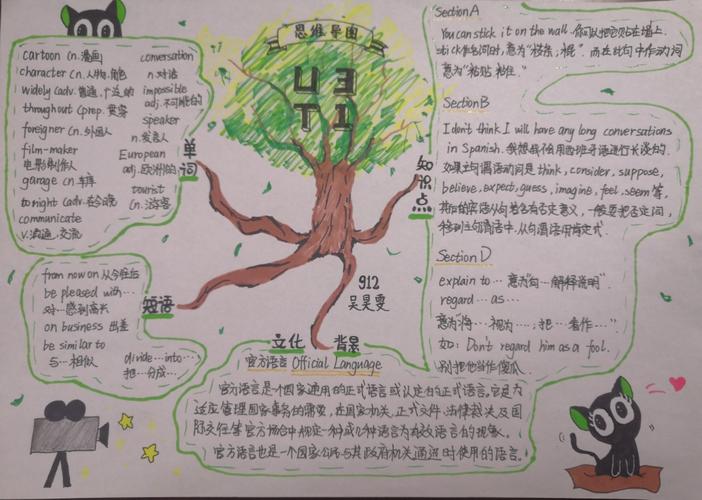 思维导图
U3
T1
单词
cartoon (n.漫画
character (n.人物.角色
widely (adv.普遍,广泛的
throughout (prep.贯穿
foreigner (n.外国人
film-maker
电影制作人
garage (n.车库
tonight (adv.在今晚
communicate
v.沟通.交流
conversation
n.对话
impossible
adj.不可能的
speaker
n.发言人
European
adj.欧洲的
tourist
(n.游客
短语
from now on 从今往后
be pleased with…
对…感到高兴
on business 出差
be similar to
与…相似
divide…into…
把…分成…
912
知识点
Section A
You can stick it on the wall. 你可以把它贴在墙上.
stick作名词时,意为"枝条,棍". 而在此句中作动词
意为"粘贴
Section B
I don't think I will have any long conversations
in Spanish. 我想我不会用西班牙语进行长谈的.
如果主句谓语动词是think, consider, suppose,
believe, expect, guess, imagine, feel, seem等,
其后的宾语从句若含有否定意义,一般要把否定词
移到主句谓语中,从句谓语用肯定式.
Section D
explain to… 意为"向…解释说明".
regard … as…
意为"将…视为…; 把…看作…"
如: Don't regard him as a fool.
别把他当作傻瓜.
文化背景
官方语言 Official Language
官方语言是一个国家通用的正式语言或认定的正式语言。它是为
适应管理国家事务的需要,在国家机关、正式文件、法律裁决及国
际交往等官方场合中规定一种或几种语言为有效语言的现象。
官方语言也是一个国家公民与其政府机关通讯时使用的语言。